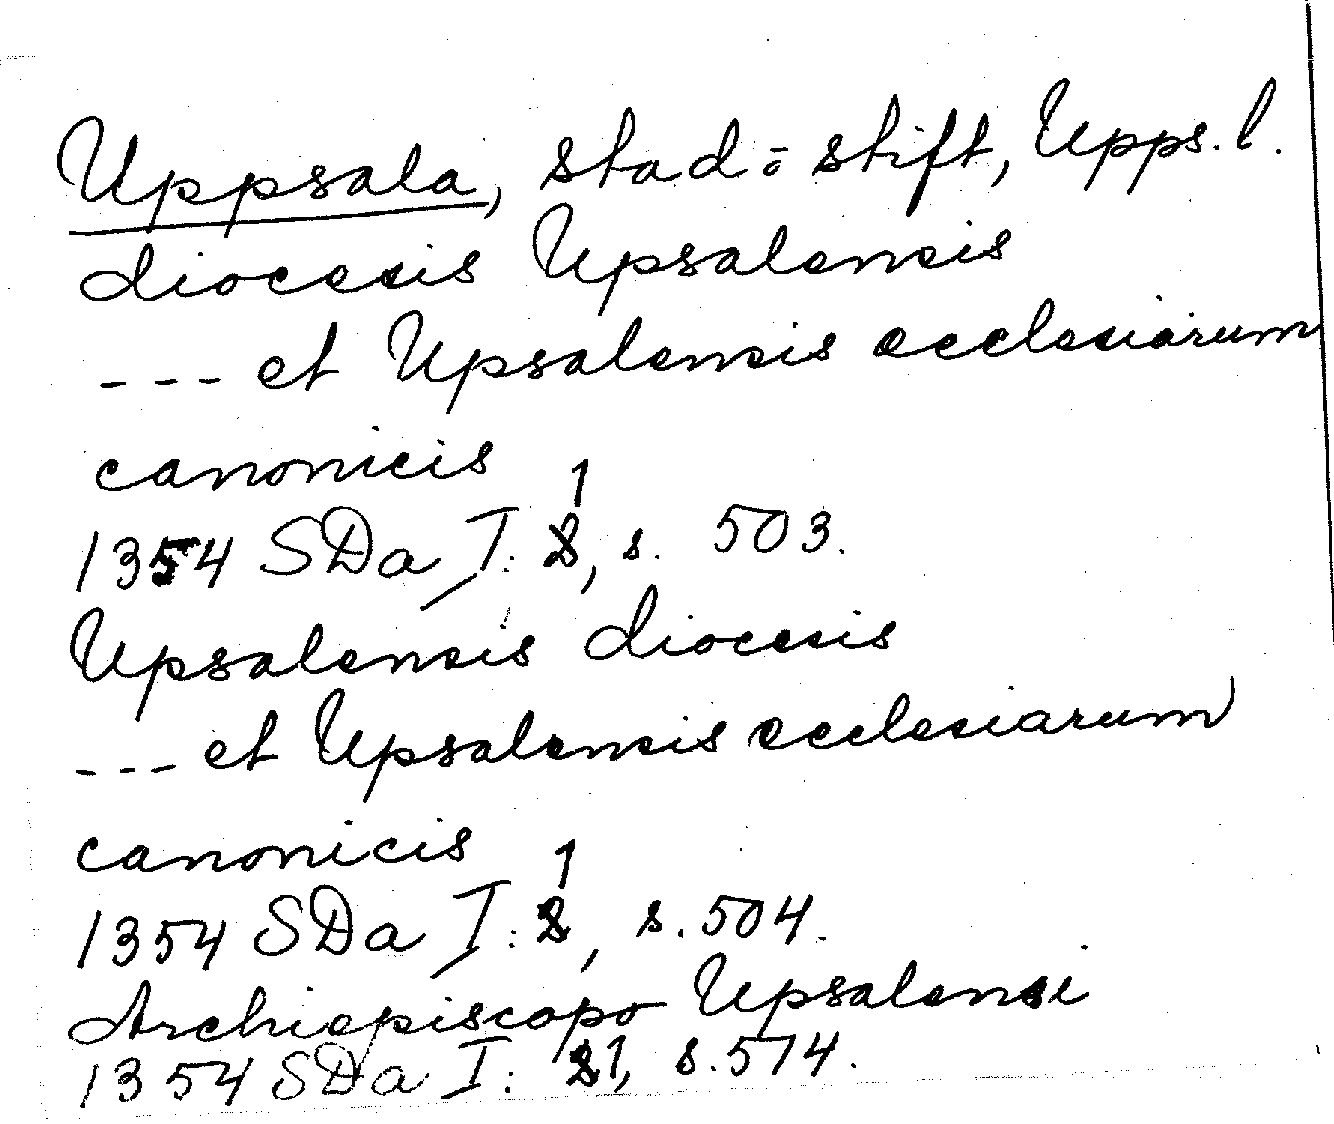 Uppsala, stad o stift, Upps. l.
diocesis Upsalensis
--- et Upsalensis ecclesiarum
canonicis
1354 SDa I: 1, s. 503.
Upsalensis diocesis
--- et Upsalensis ecclesiarum
canonicis
1354 SDa I: 1, s. 504.
Archiepiscopo Upsalensi
1354 SDa I: 1, s. 574.